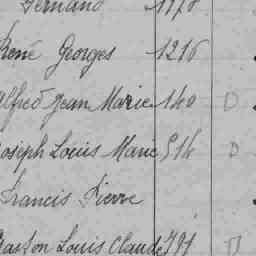 Fernand 1778
René Georges 1216
Alfred Jean Marie 140 D
Joseph Louis Marie 514 D
Francis Pierre
Gaston Louis Claude 791 D